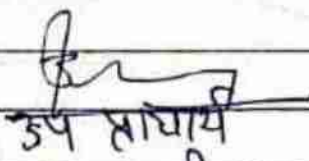 उप प्राचार्य